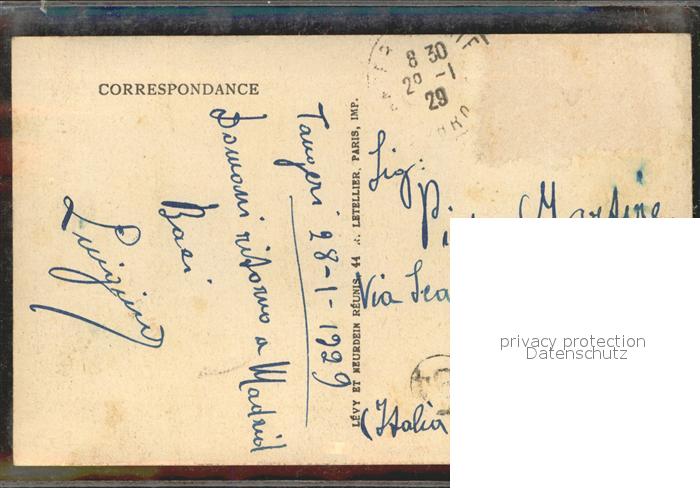 CORRESPONDANCE
Tangeri 28-1-1929
Domani ritorno a Madrid
Baci
Luigino
LÉVY ET NEURDEIN RÉUNIS, 44 LETELLIER, PARIS, IMP.
8 30
29 -1
29
Sig:
Martire
Via
(Italia
privacy protection
Datenschutz